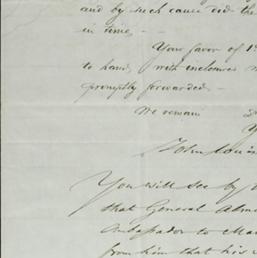 and by such cause did the
in time, -
Your favor of 1
to hand, with inclosures
promptly forwarded. -
We remain
John
You will see by
that General
Ambassador to
from him that his